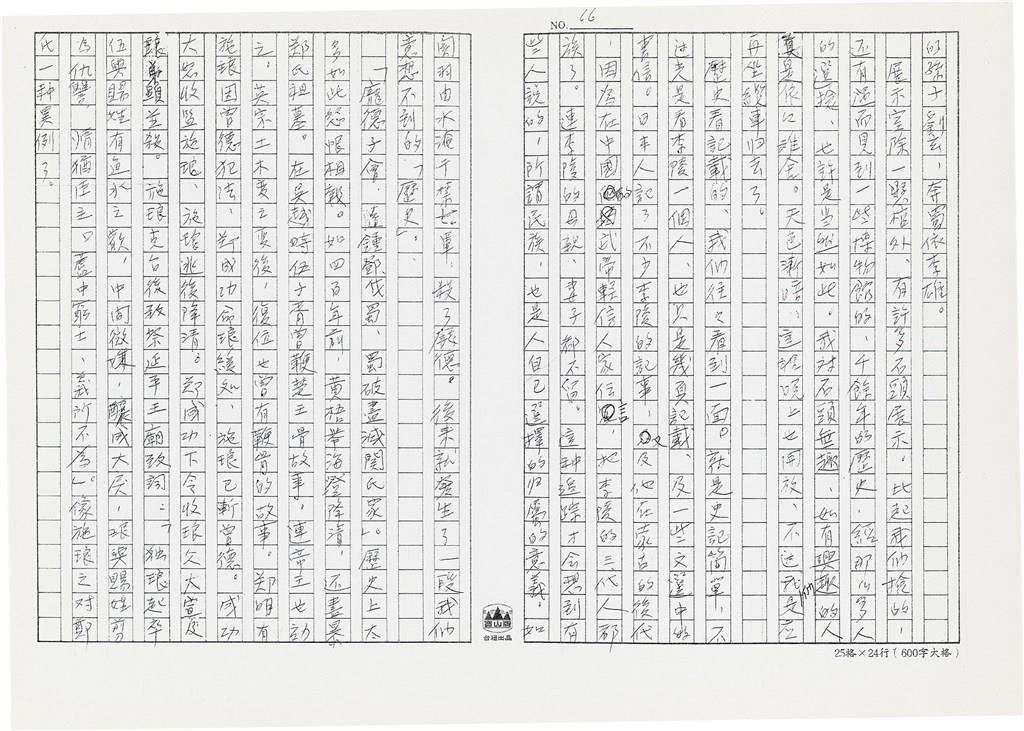 NO. 66
的孫子劉玄，奔蜀依李雄。
展示室除一顆棺外，有許多石頭展示。比起我們撿的，
还有遇而見到一些博物館的，千餘年的歷史，經那么多人
的選撿，也許是当然如此。我对石頭無趣，如有興趣的人
真是依口誰金。天色漸暗，這裡晚上也開放，不过我們是在
再坐纜車归去了。
歷史看記載的，我們往々看到一面。就是史記簡單，不
过光是看李陵一個人，也只是幾頁記載，及一些文選中的
書信。日本人記了不少李陵的記事，又及他在蒙古的後代
，因為在中國的武帝輕信人家传言，把李陵的三代人都
族了。連李陵的母親，妻子都不留。這种追踪才会想到有
些人說的，所謂民族，也是人自己選擇的归屬的意義。如
関羽由水淹于禁七軍，殺了龐德。後来就發生了一段我们
意想不到的「歷史」。
「龐德子會，遂鍾鄧伐蜀，蜀破盡滅関氏家」。歷史上太
多如此怨恨相報。如四百年前，黄梧帶海澄降清，还盡暴
郑氏祖墓。在吴越時伍子胥曾鞭楚王骨故事，連帝王也効
之。英宗土木変之变後，復位也曾有鞭骨的故事。郑明有
施琅因曾德犯法，郑成功命琅緩处，施琅已斬曾德。成功
大怒收监施琅，施琅逃後降清。郑成功下令收琅父大宣及
琅弟顯並殺。施琅克台後致祭延平王廟致詞：「独琅起卒
伍與賜姓有魚水之歡，中間微嫌，釀成大戾，琅與賜姓剪
為仇讐，情猶臣主。蘆中窮士，義所不為」。像施琅之对鄭
氏一种異例了。
富山牌
台紙出品
25格×24行（600字大格）